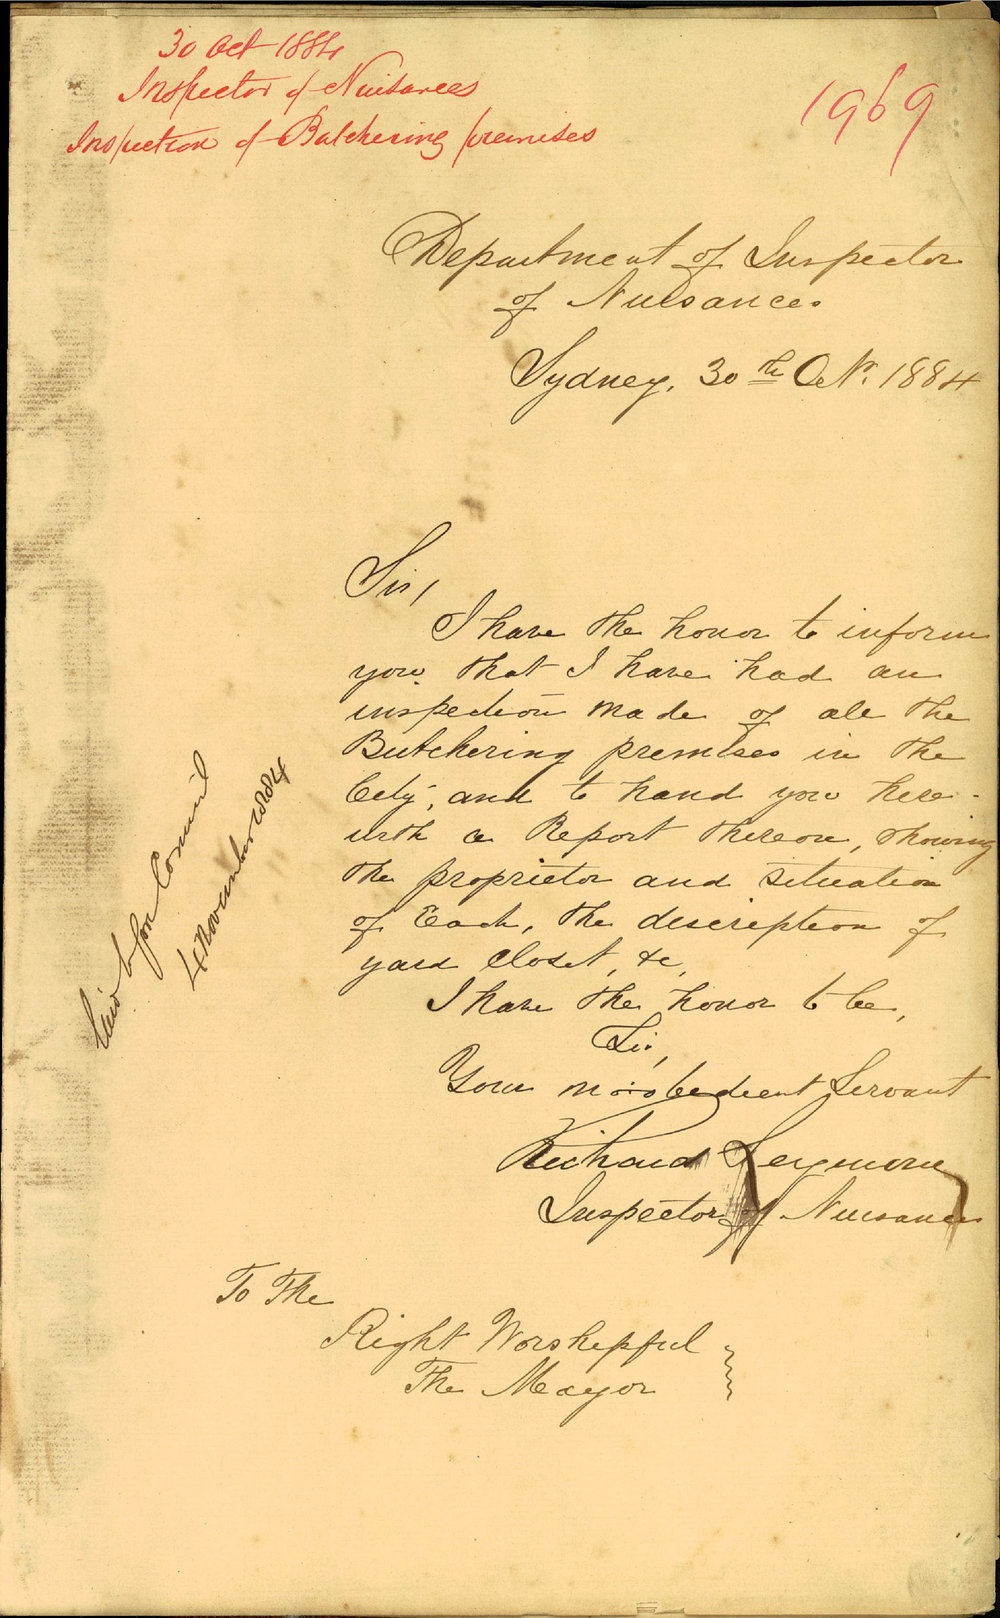 30 Oct 1884
Inspector of Nuisances
Inspection of Butchering premises
1969
Department of Inspector
of Nuisances
Sydney, 30th Octr. 1884
Sir,
I have the honor to inform
you that I have had an
inspection made of all the
Butchering premises in the
City, and to hand you here-
with a Report thereon, showing
the proprietor and situation
of Each, the description of
yard closet, &c,
I have the honor to be,
Sir,
Your mo: obedient Servant
Richard Seymour
Inspector of Nuisances
To The
Right Worshipful
The Mayor
Laid before Council
4 November 1884